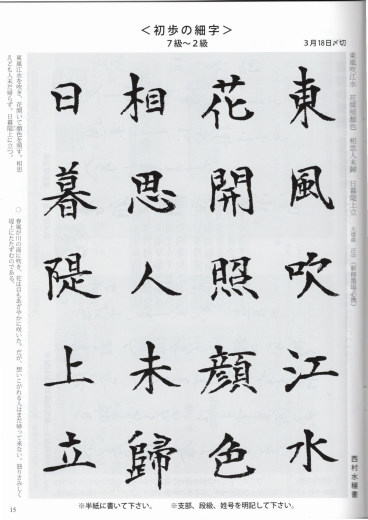 ＜初歩の細字＞
７級〜２級
３月18日〆切
東風吹江水　花開照顔色　相思人未歸　日暮隄上立
東風吹江水
花開照顔色
相思人未歸
日暮隄上立
西村水穂書
東風江水を吹き、花開いて顔色を照す。相思
えども人未だ帰らず。日暮隄上に立つ。
○　春風が川の面に吹き、花は目もあざやかに咲いた。だが、想いこがれる人はまだ帰って来ない。独りさみしく
堤上にたたずむのである。
※半紙に書いて下さい。　※支部、段級、姓号を明記して下さい。
15